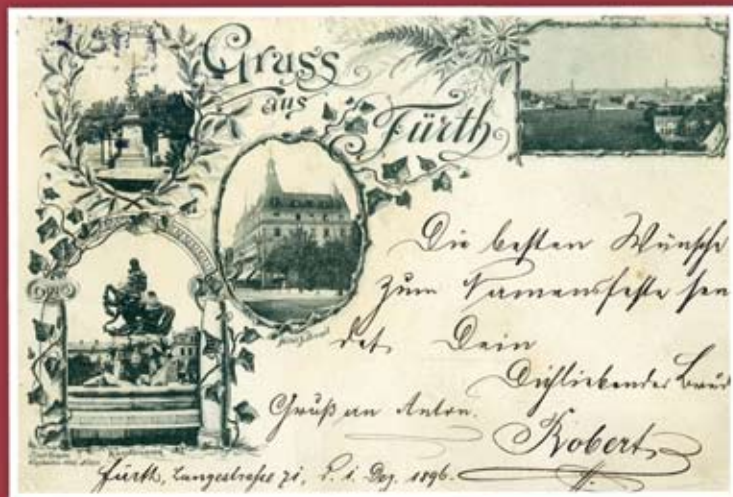 Gruss
aus
Fürth
Die besten Wünsche
zum Namensfeste sen
det Dein
Dichliebender Brud
Gruß an Anton.
Robert
Fürth, Langestraße 71, d. 1. Dez. 1896.